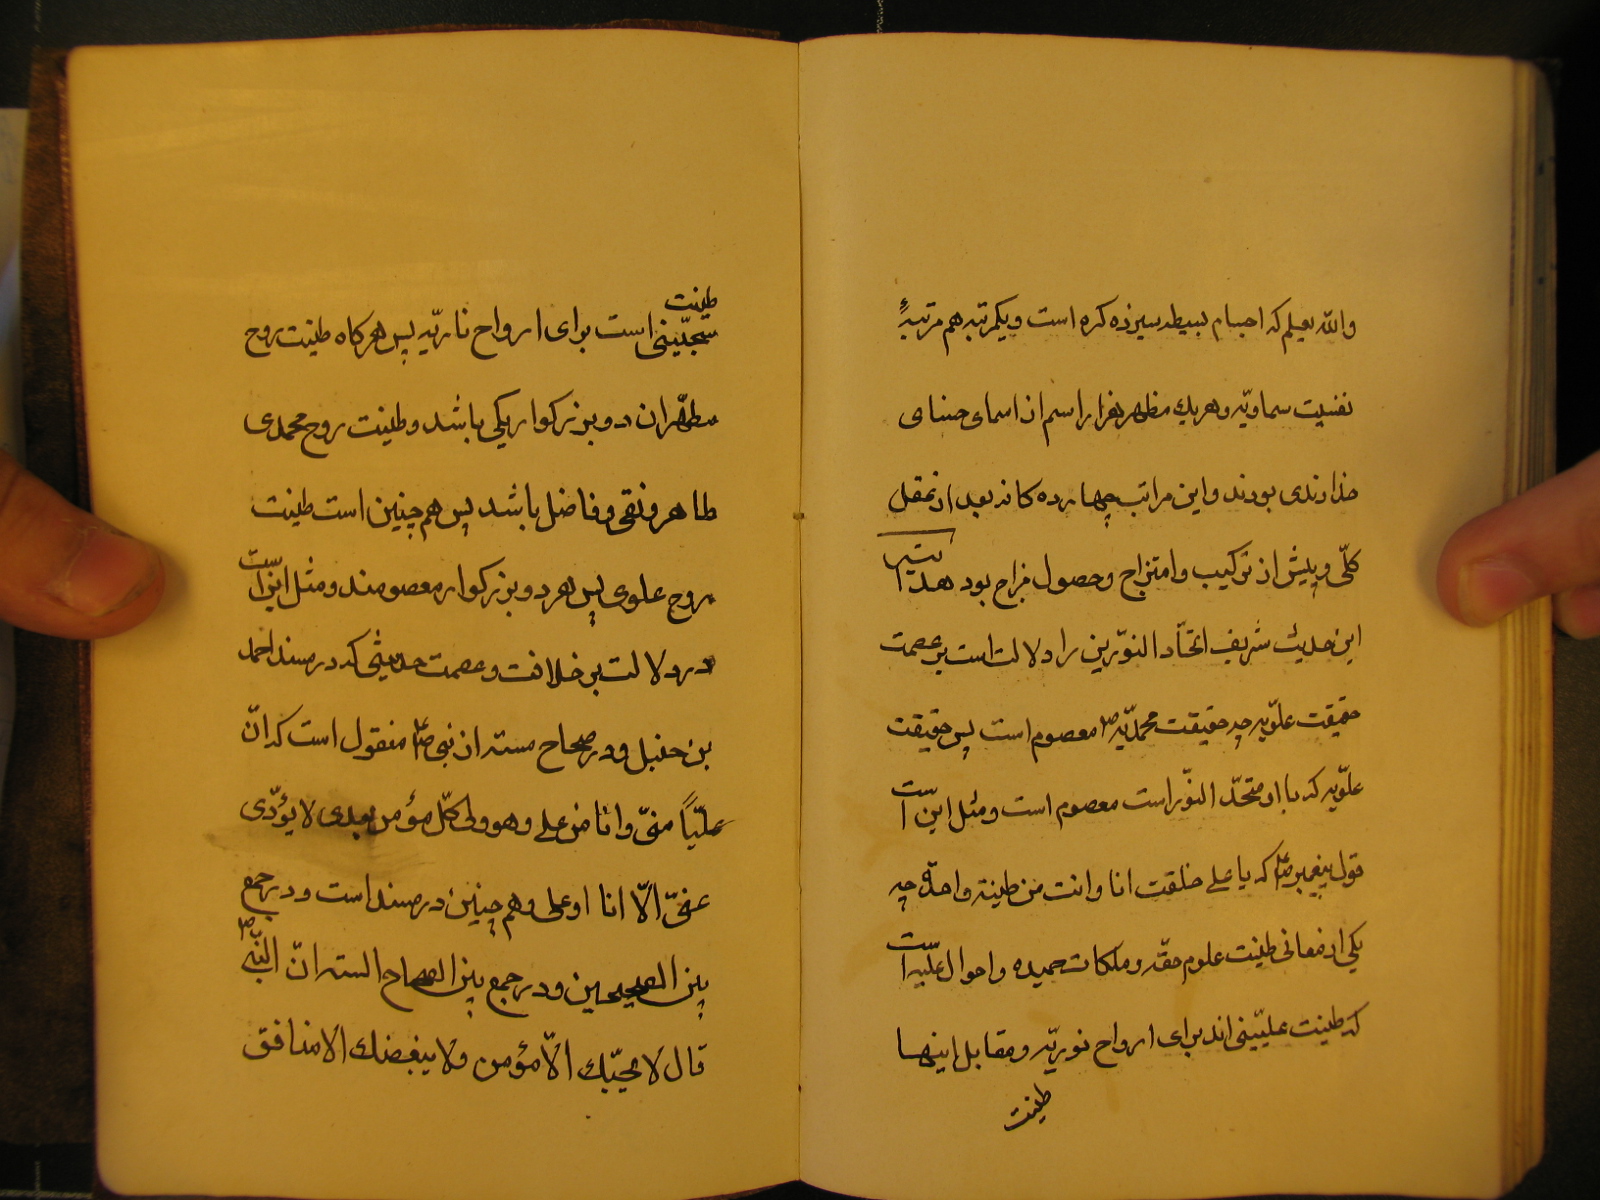 والله یعلم که اجسام بسیطه سیزده کره است ویکمرتبه هم مرتبهٔ
نفسیت سماویّه وهریک مظهر هزار اسم از اسمای حسنای
خداوندی بودند واین مراتب چهارده کانه بعد از تعقل
کلّی وپیش از ترکیب وامتزاج وحصول مزاج بود هذا
این حدیث شریف اتحّاد النوّرین را دلالت است بر عصمت
حقیقت علویه چه حقیقت محمدیّه ص معصوم است پس حقیقت
علوّیه که با او متحّد النوّر است معصوم است ومثل این است
قول پیغمبر ص که یا علی خلقت انا وانت من طینة واحدة چه
یکی از معانی طینت علوم حقه وملکات حمیده واحوال علیّه است
که طینت علیّینی اند برای ارواح نوریّه ومقابل اینها
طینت
طینت
سجّینی است برای ارواح ناریّه پس هرکاه طینت روح
مطهّر ان دو بزرکوار یکی باشد وطینت روح محمدی
طاهر ونقی وفاضل باشد پس هم چنین است طینت
روح علوی پس هر دو بزرکوار معصومند ومثل این است
در دلالت بر خلافت وعصمت حدیثی که در مسند احمد
بن حنبل ودر صحاح سته از نبی ص منقول است که انّ
علیّاً منیّ وانا من علی وهو ولی کلّ مؤمن بعدی لا یؤدّی
عنیّ الّا انا او علی وهم چنین در مسند است ودر جمع
بین الصحیحین ودر جمع بین الصحاح السته انّ النّبی ص
قال لا یحبّک الّا مؤمن ولا یبغضک الا منافق